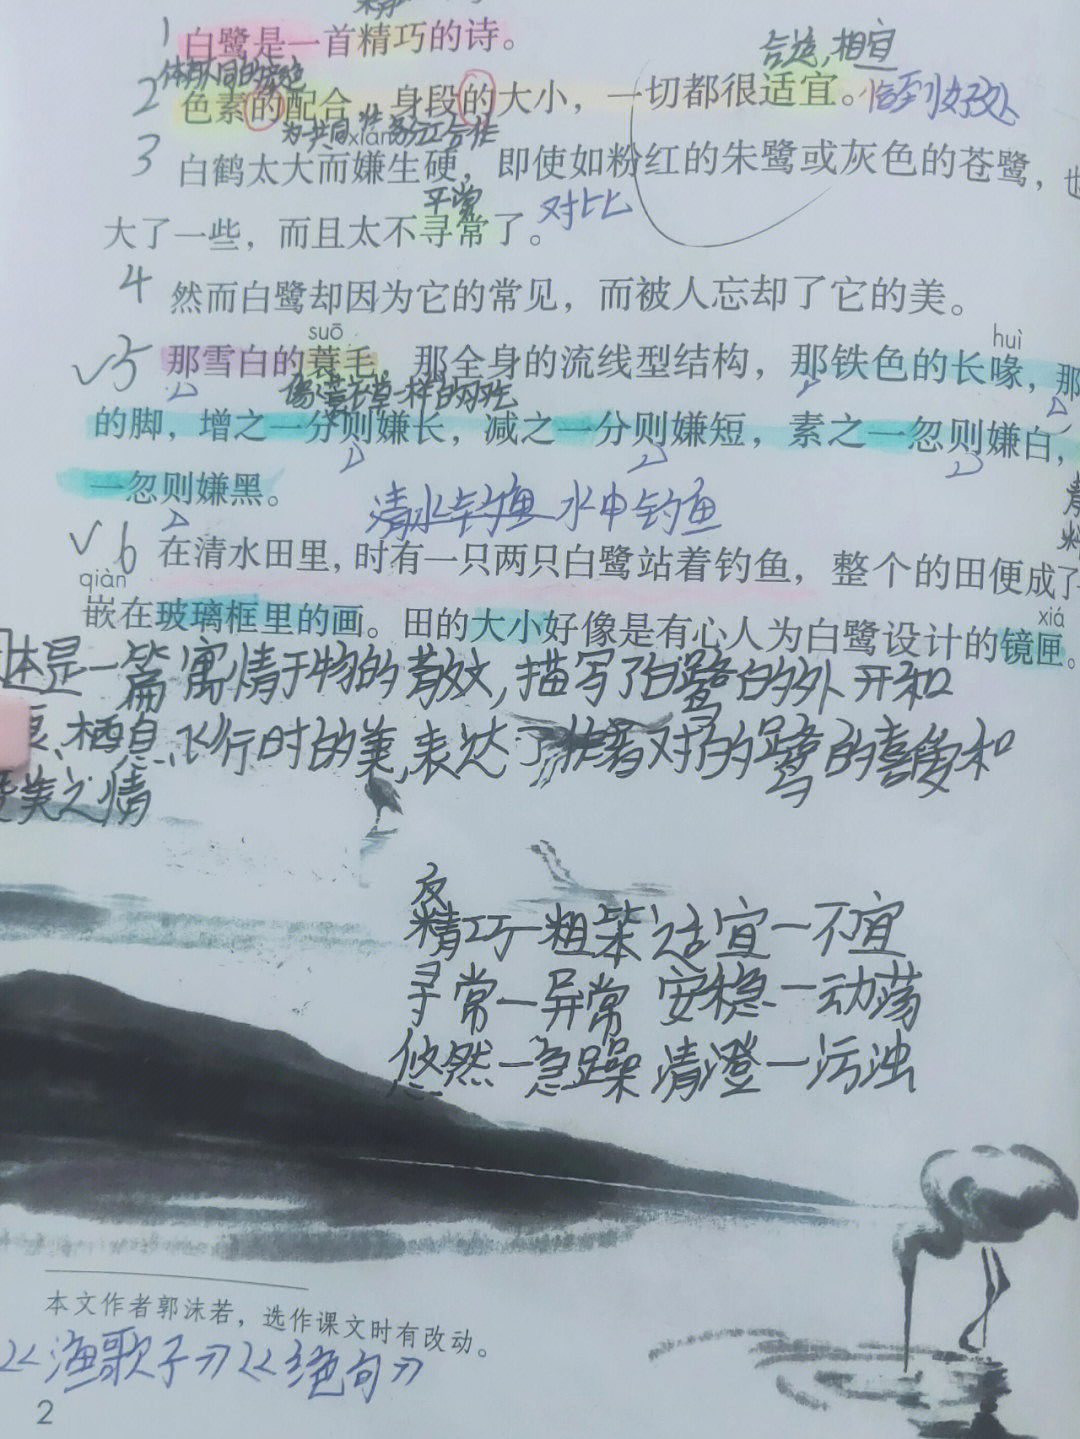 1 白鹭是一首精巧的诗。
合适，相宜
2 色素的配合，身段的大小，一切都很适宜。恰到好处
为共同 分工合作
xián
3 白鹤太大而嫌生硬，即使如粉红的朱鹭或灰色的苍鹭，也
平常 对比
大了一些，而且太不寻常了。
4 然而白鹭却因为它的常见，而被人忘却了它的美。
suō huì
√5 那雪白的蓑毛，那全身的流线型结构，那铁色的长喙，那
的脚，增之一分则嫌长，减之一分则嫌短，素之一忽则嫌白，
一忽则嫌黑。
清水钓鱼 水中钓鱼
√6 在清水田里，时有一只两只白鹭站着钓鱼，整个的田便成了
qiàn xiá
嵌在玻璃框里的画。田的大小好像是有心人为白鹭设计的镜匣。
体是一篇寓情于物的散文，描写了白鹭的外形和
栖息、飞行时的美，表达了作者对白鹭的喜爱和
美之情
反
精巧—粗笨 适宜—不宜
寻常—异常 安稳—动荡
悠然—急躁 清澄—污浊
本文作者郭沫若，选作课文时有改动。
《渔歌子》《绝句》
2